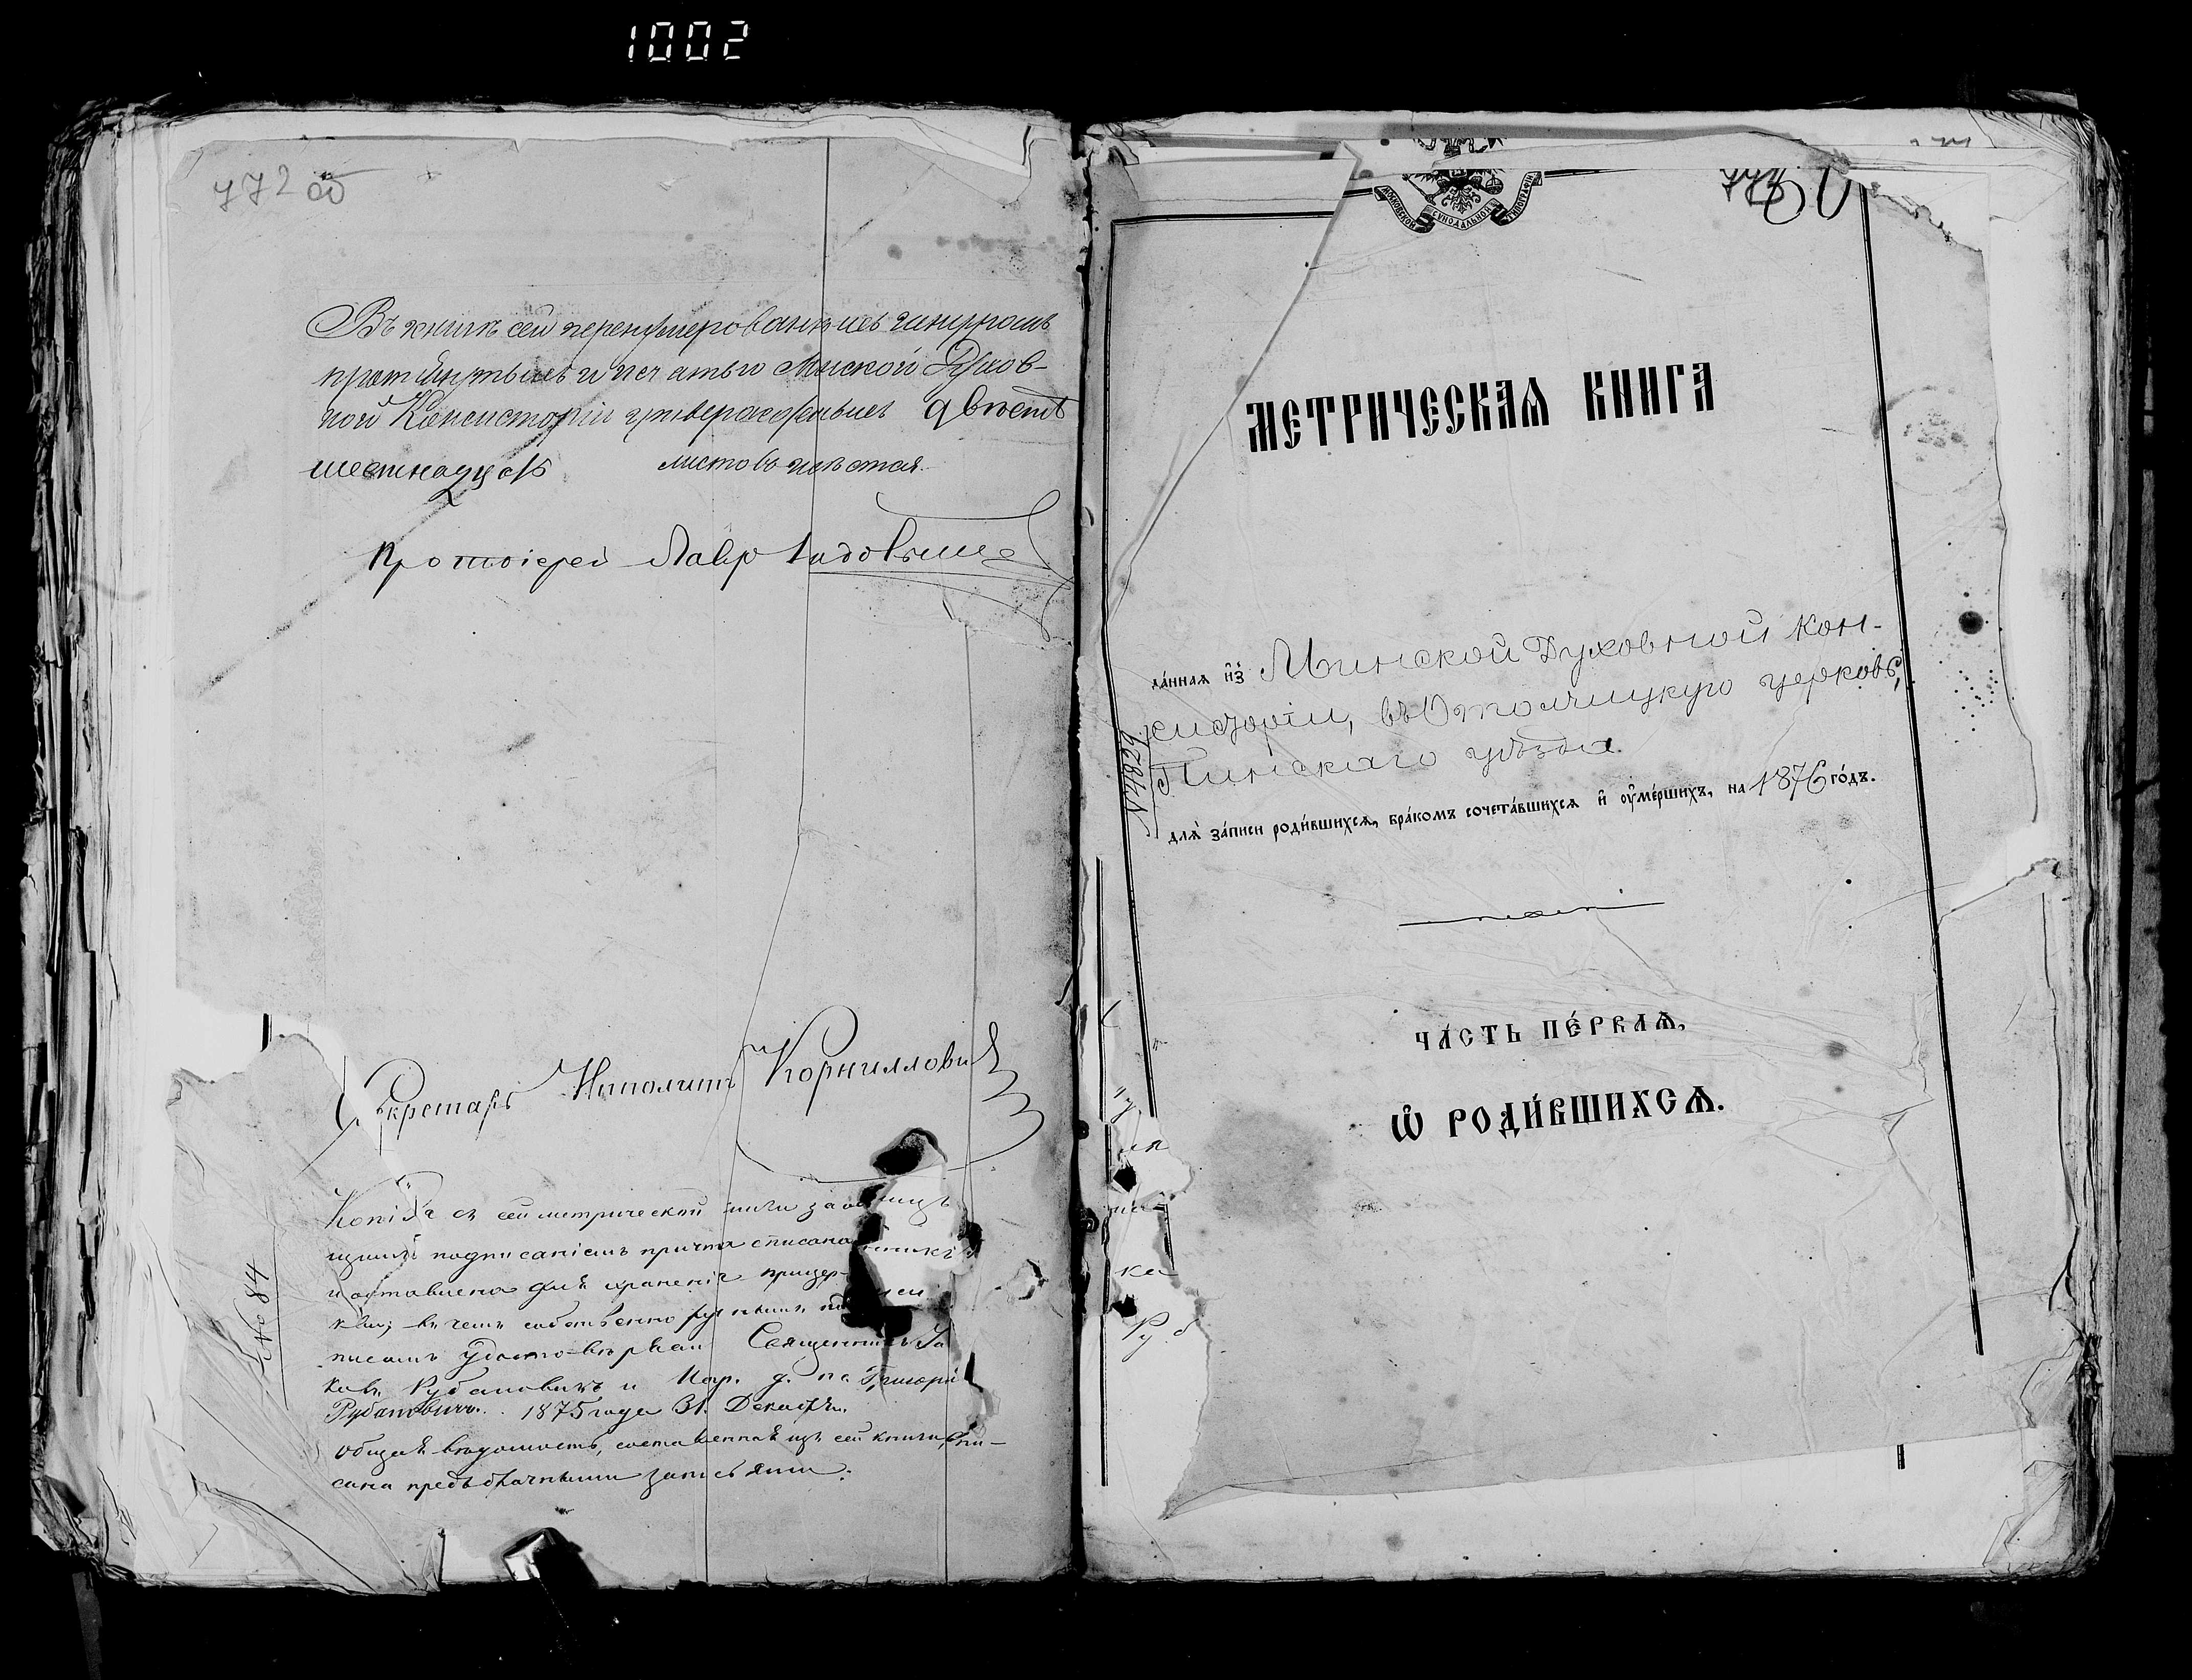 1002
772 об
Въ книгѣ сей перенумерованныхъ шнуромъ
протянутыхъ и печатью Минской Духов-
ной Консисторіи утвержденныхъ двѣсти
шестнадцать листовъ
Протоіерей Лавр
Секретарь Ипполитъ Корниллович
Копія съ сей метрической книги за
подписаніемъ причта списана
и оставлена для храненія при цер-
кви; въ чемъ собственноручнымъ
писомъ удостовѣряемъ Священникъ Іа
ковъ Рубановичъ и Григорі
Рубановичъ. 1875 года 31 Декабря.
Общая вѣдомость, составленная изъ сей книги, впи-
сана предъ брачными записями.
№ 84
МОСКОВСКОЙ СѴНОДАЛЬНОЙ ТИПОГРАФІИ
МЕТРИЧЕСКАѦ КНИГА
да́ннаѧ и҆з̾ Минской Духовной Кон-
систоріи, въ церковь,
Пинскаго уѣзда
длѧ̀ за́писи роди́вшихсѧ, бра́комъ сочета́вшихсѧ и҆ оу҆ме́ршихъ, на 1876 го́дъ.
N 7824
ЧА́СТЬ ПЕ́РВАѦ,
Ѡ҆ РОДИ́ВШИХСѦ.
ка
Руб